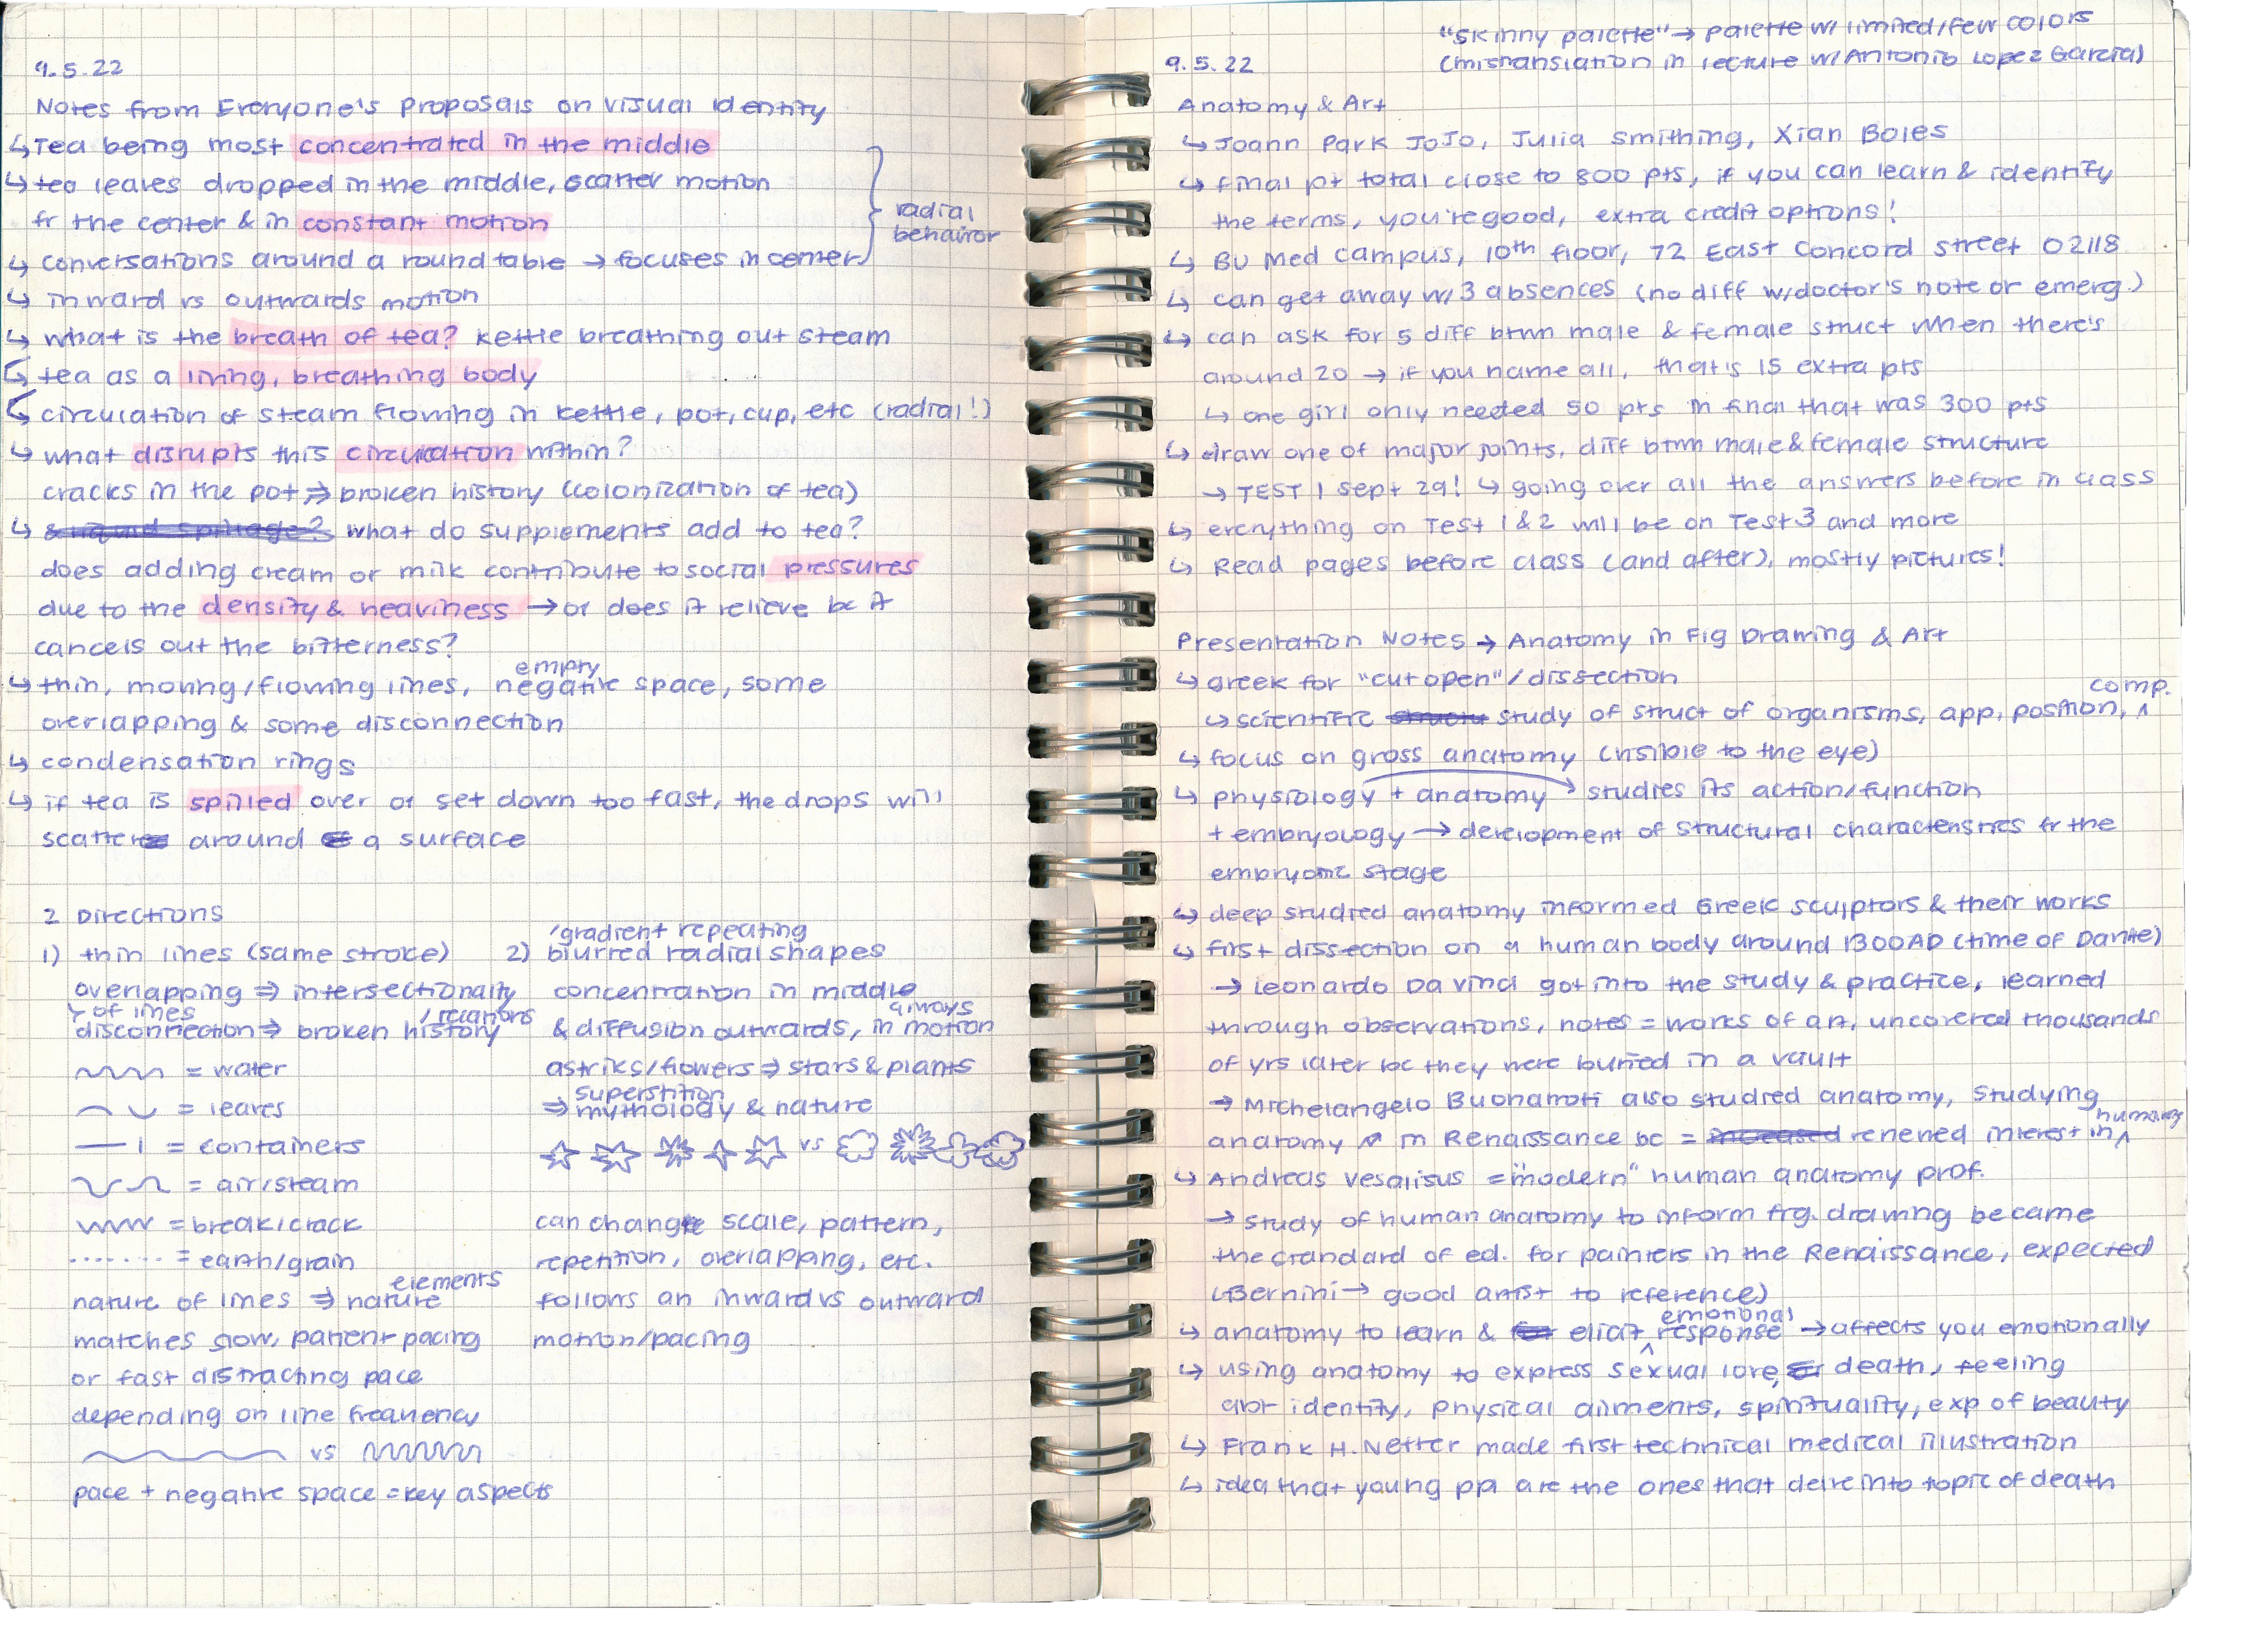 9.5.22
Notes from Everyone's Proposals on visual identity
↳ Tea being most concentrated in the middle
↳ tea leaves dropped in the middle, scatter motion
fr the center & in constant motion
↳ conversations around a round table → focuses in center
radial
behavior
↳ inward vs outwards motion
↳ what is the breath of tea? kettle breathing out steam
↳ tea as a living, breathing body
↳ circulation of steam flowing in kettle, pot, cup, etc (radial!)
↳ what disrupts this circulation within?
cracks in the pot ⇒ broken history (colonization of tea)
↳ what do supplements add to tea?
does adding cream or milk contribute to social pressures
due to the density & heaviness → or does it relieve bc it
cancels out the bitterness?
empty
↳ thin, moving/flowing lines, negative space, some
overlapping & some disconnection
↳ condensation rings
↳ if tea is spilled over or set down too fast, the drops will
scatter around a surface
2 Directions
1) thin lines (same stroke)
overlapping ⇒ intersectionality
of lines / relations
disconnection ⇒ broken history
= water
= leaves
= containers
= air/steam
= break/crack
= earth/grain
elements
nature of lines ⇒ nature
matches slow, patient pacing
or fast distracting pace
depending on line frequency
vs
pace + negative space = key aspects
/gradient repeating
2) blurred radial shapes
concentration in middle
always
& diffusion outwards, in motion
astriks/flowers ⇒ stars & plants
superstition
⇒ mythology & nature
vs
can change scale, pattern,
repetition, overlapping, etc.
follows an inward vs outward
motion/pacing
"skinny palette" → palette w/ limited/few colors
(mistranslation in lecture w/ Antonio Lopez Garcia)
9.5.22
Anatomy & Art
↳ Joann Park JoJo, Julia Smithing, Xian Boles
↳ final pt total close to 800 pts, if you can learn & identify
the terms, you're good, extra credit options!
↳ BU Med campus, 10th floor, 72 East Concord Street 02118
↳ can get away w/ 3 absences (no diff w/ doctor's note or emerg.)
↳ can ask for 5 diff btwn male & female struct when there's
around 20 → if you name all, that's 15 extra pts
↳ one girl only needed 50 pts in final that was 300 pts
↳ draw one of major joints, diff btwn male & female structure
→ TEST 1 Sept 29! ↳ going over all the answers before in class
↳ everything on Test 1 & 2 will be on Test 3 and more
↳ Read pages before class (and after), mostly pictures!
Presentation Notes → Anatomy in Fig Drawing & Art
↳ greek for "cut open"/dissection
comp.
↳ scientific study of struct of organisms, app, position, ^
↳ focus on gross anatomy (visible to the eye)
↳ physiology + anatomy → studies its action/function
+ embryology → development of structural characteristics fr the
embryonic stage
↳ deep studied anatomy informed Greek sculptors & their works
↳ first dissection on a human body around 1300 AD (time of Dante)
→ Leonardo Da Vinci got into the study & practice, learned
through observations, notes = works of art, uncovered thousands
of yrs later bc they were buried in a vault
→ Michelangelo Buonarroti also studied anatomy, studying
humans
anatomy ↗ in Renaissance bc = renewed interest in ^
↳ Andreas Vesalisus = "modern" human anatomy prof.
→ study of human anatomy to inform fig. drawing became
the standard of ed. for painters in the Renaissance, expected
(Bernini → good artist to reference)
emotional
↳ anatomy to learn & elicit ^ response → affects you emotionally
↳ using anatomy to express sexual love, death, feeling
abt identity, physical ailments, spirituality, exp of beauty
↳ Frank H. Netter made first technical medical illustration
↳ idea that young ppl are the ones that delve into topic of death